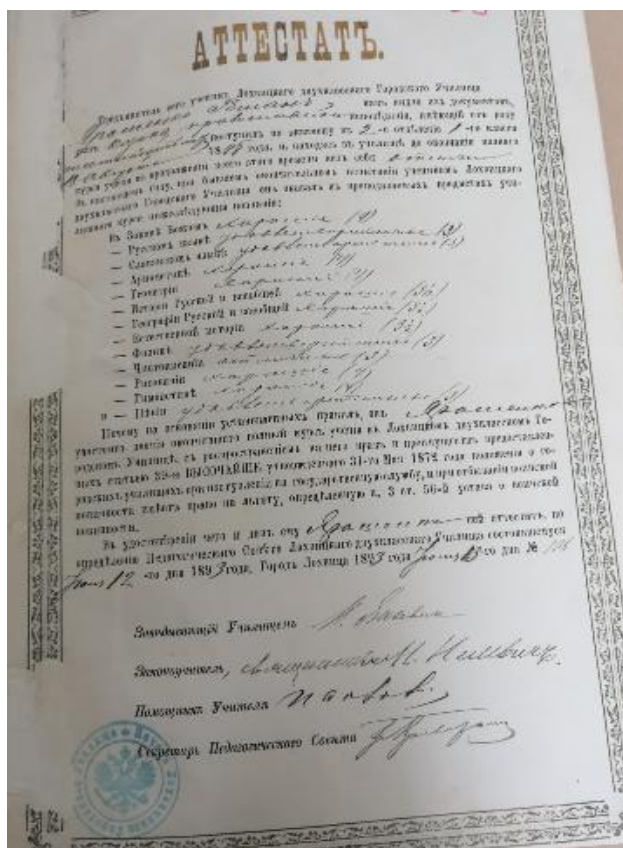 АТТЕСТАТЪ.
Предъявитель сего ученикъ Лохвицкаго двухкласснаго Городскаго Училища
какъ видно изъ документовъ,
православнаго исповѣданія, имѣющій отъ роду
поступилъ по экзамену въ 2-е отдѣленіе 1-го класса
18 года и, находясь въ училищѣ до окончанія полнаго
курса ученія въ продолженіи всего этого времени велъ себя отлично
въ настоящемъ году, при бывшемъ окончательномъ испытаніи ученикамъ Лохвицкаго
двухкласснаго Городскаго Училища онъ оказалъ въ преподаваемыхъ предметахъ
познанія:
Въ Законѣ Божіемъ хорошія (4)
— Русскомъ языкѣ удовлетворительныя (3)
— Славянскомъ языкѣ удовлетворительныя (3)
— Ариѳметикѣ хорошія (4)
— Геометріи хорошія (4)
— Исторіи Русской и всеобщей хорошія (3½)
— Географіи Русской и всеобщей хорошія (3½)
— Естественной исторіи хорошія (3½)
— Физикѣ удовлетворительныя (3)
— Чистописаніи
— Рисованіи хорошія (4)
— Гимнастикѣ хорошія (4)
и — Пѣніи удовлетворительныя (3)
Почему на основаніи установленныхъ правилъ, онъ Ярошенко
удостоенъ званія окончившаго полный курсъ ученія въ Лохвицкомъ двухклассномъ Го-
родскомъ Училищѣ, съ распространеніемъ на него правъ и преимуществъ предоставлен-
ныхъ статьею 39-ю ВЫСОЧАЙШЕ утвержденнаго 31-го Мая 1872 года положенія о го-
родскихъ училищахъ при поступленіи на государственную службу, и при отбываніи воинской
повинности имѣетъ право на льготу, опредѣленную п. 3 ст. 56-й устава о воинской
повинности.
Въ удостовѣреніе чего и данъ ему Ярошенко сей аттестатъ, по
опредѣленію Педагогическаго Совѣта Лохвицкаго двухкласснаго Училища состоявшемуся
Іюня 12 -го дня 1893 года. Городъ Лохвица 1893 года Іюня -го дня №
Завѣдывающій Училищемъ
Законоучитель, священникъ
Помощникъ Учителя
Секретарь Педагогическаго Совѣта